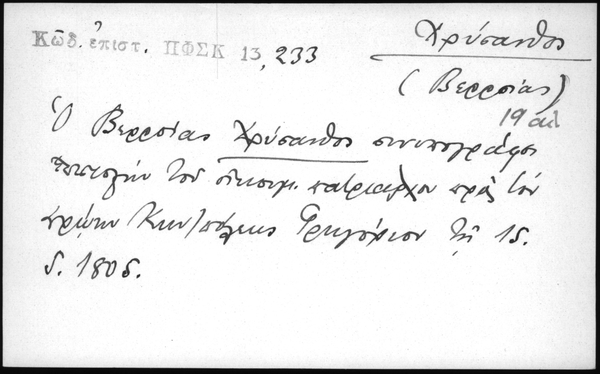 Κῶδ. ἐπιστ. ΠΦΣΚ 13, 233
Χρύσανθος
(Βερροίας)
19 αἰ
Ὁ Βερροίας Χρύσανθος συνυπογράφει
ἐπιστολὴν τοῦ οἰκουμ. πατριαρχου πρὸς τὸν
πρώην Κων/πόλεως Γρηγόριον τῇ 15.
5. 1805.